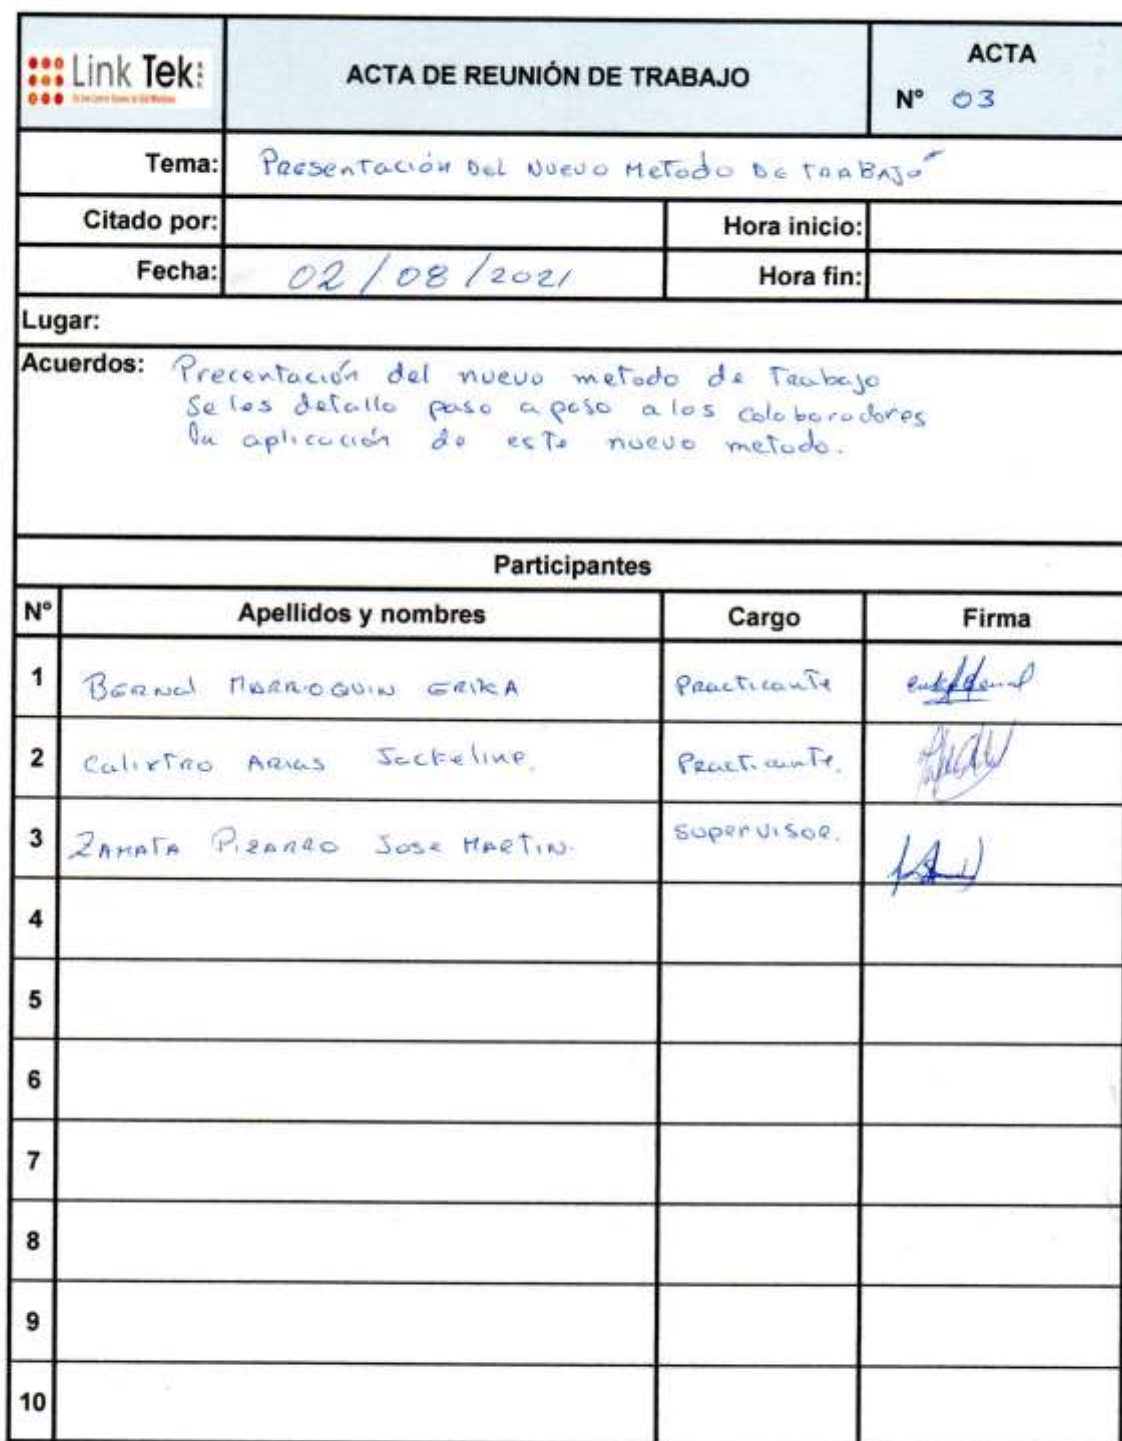 Link Tek
ACTA DE REUNIÓN DE TRABAJO
ACTA
N° 03
Tema: Presentación del nuevo metodo de trabajo
Citado por:
Hora inicio:
Fecha: 02/08/2021
Hora fin:
Lugar:
Acuerdos: Precentación del nuevo metodo de Trabajo
Se les detallo paso a paso a los colaboradores
la aplicación de este nuevo metodo.
Participantes
N° Apellidos y nombres Cargo Firma
1 Bernal Marroquin Erika Practicante
2 Calixtro Arias Jackeline. Practicante.
3 Zamata Pizarro Jose Martin. Supervisor.
4
5
6
7
8
9
10